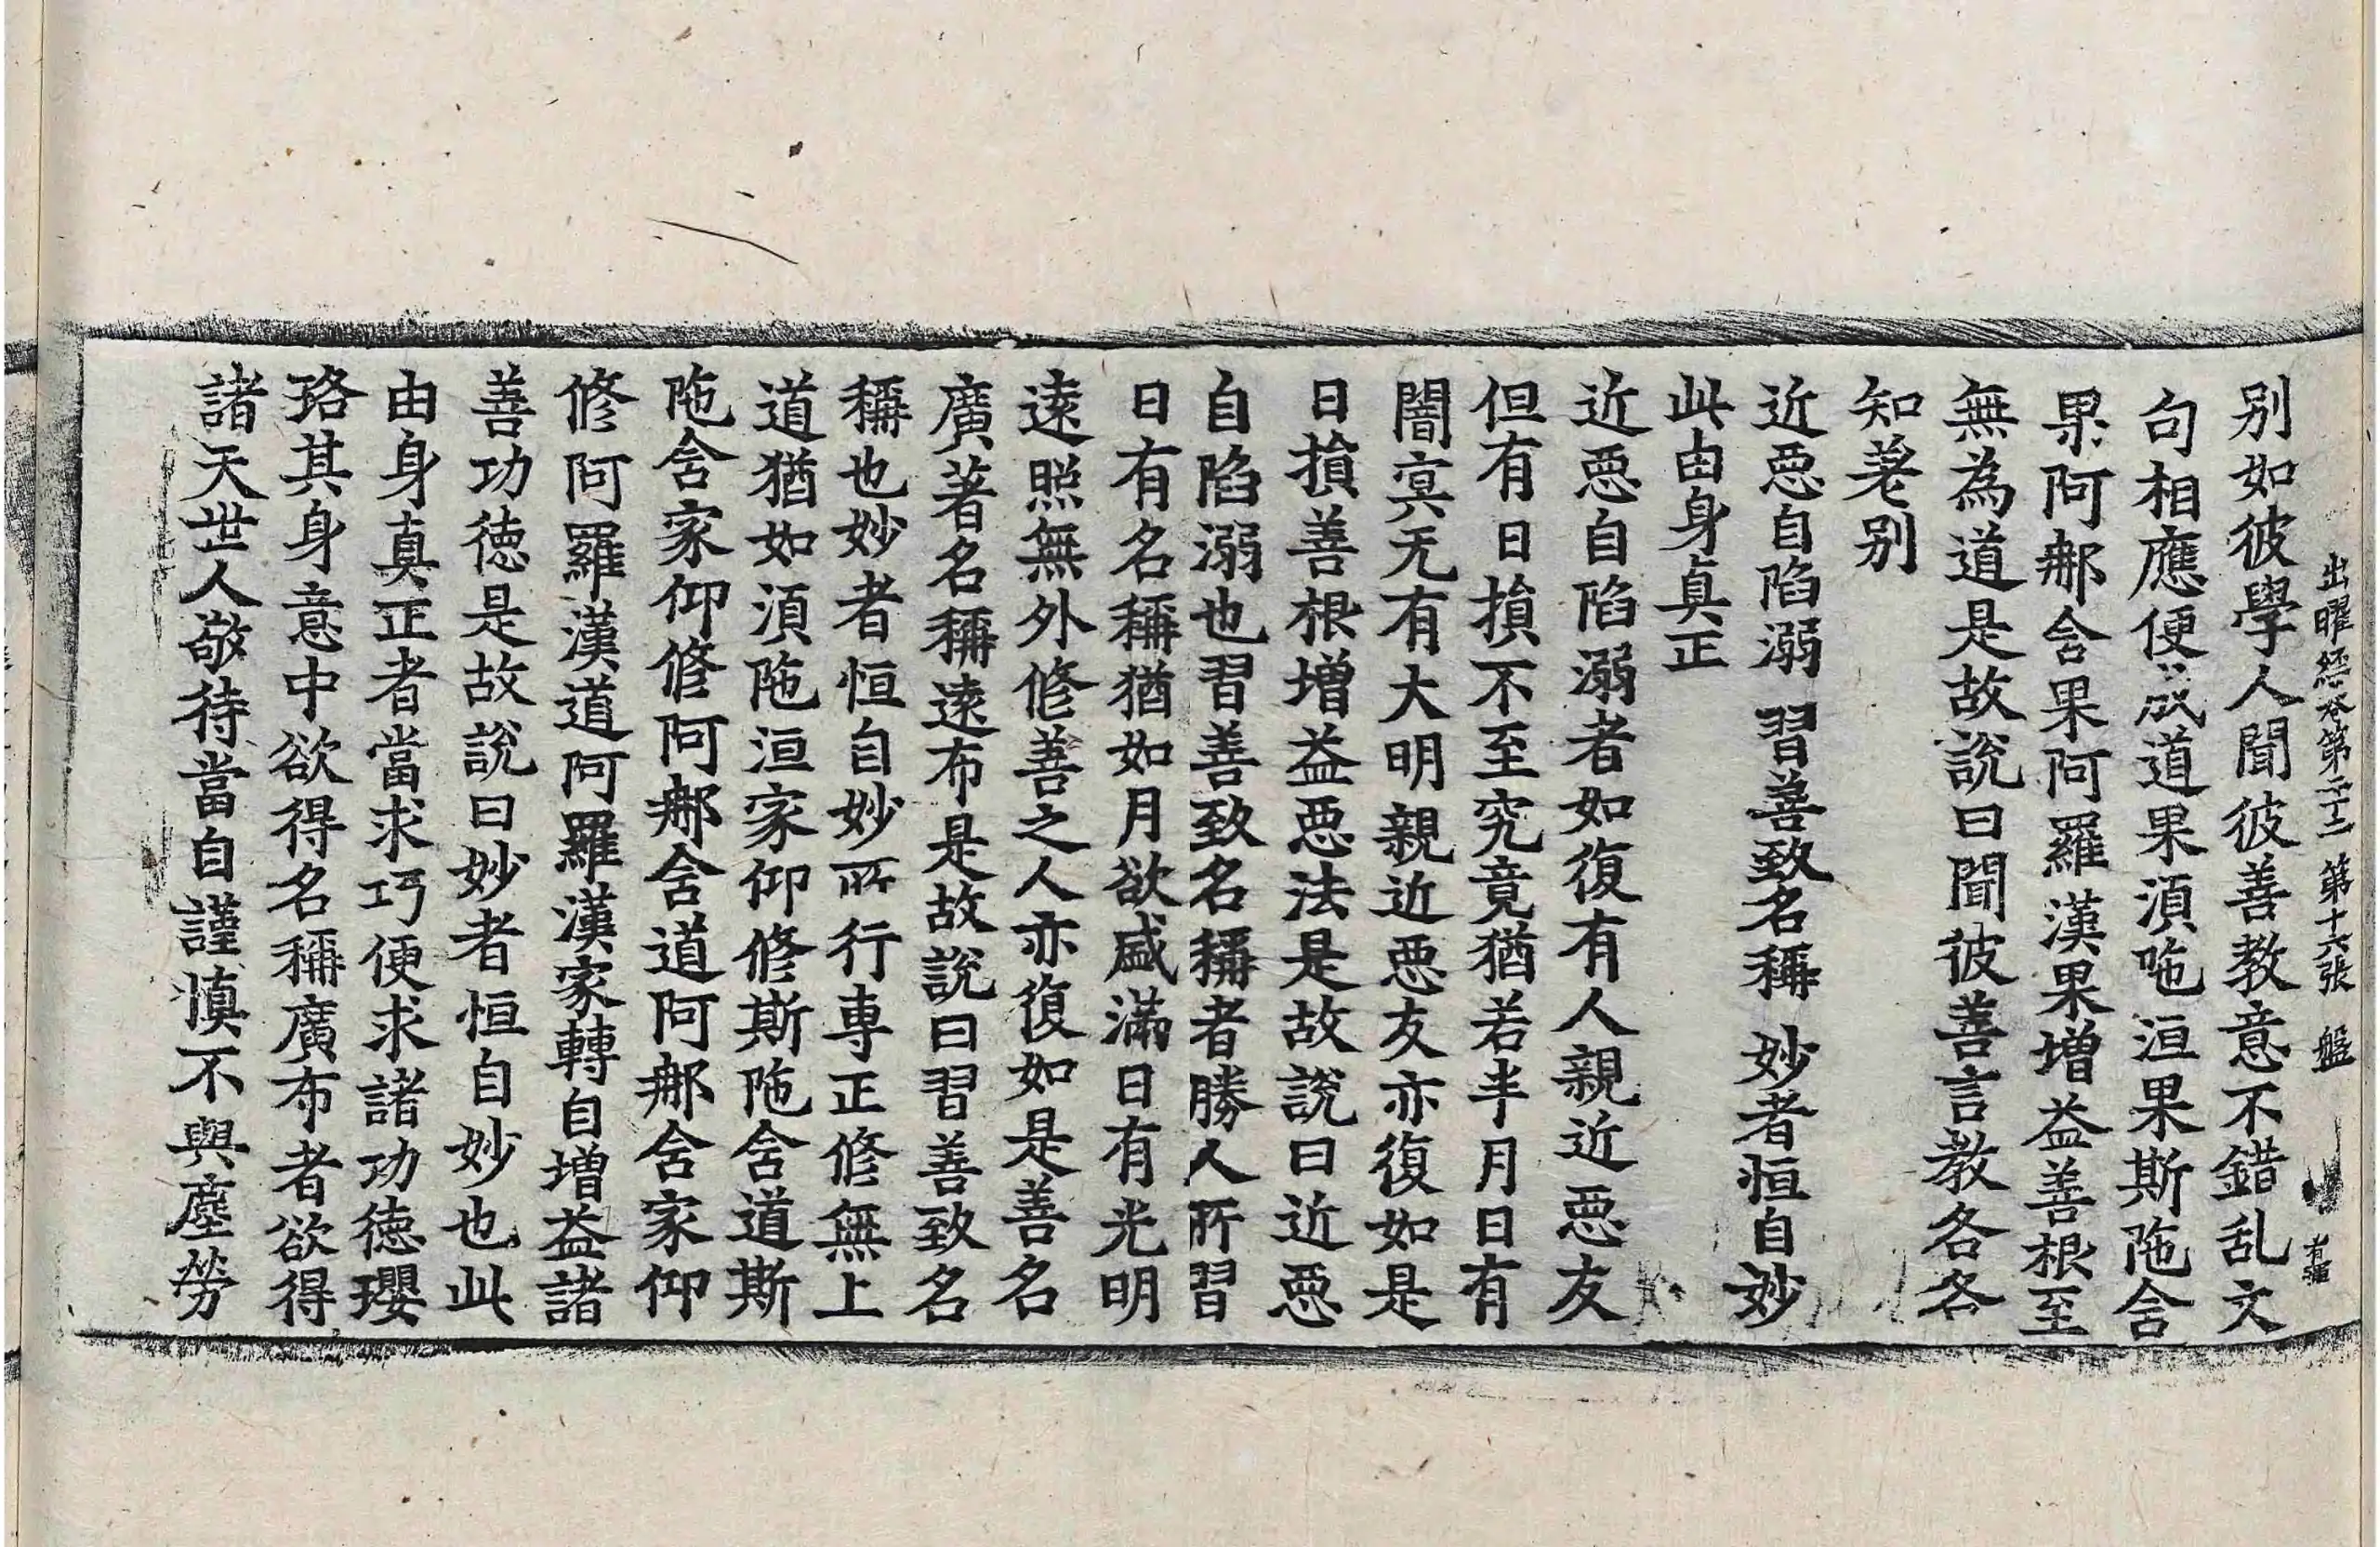 出曜經卷第二十二 第十六張 盤
别如彼學人聞彼善教意不錯乱文
句相應便成道果湏陁洹果斯陁含
果阿𨚗含果阿羅漢果增益善根至
無為道是故說曰聞彼善言教各各
知差别
近惡自陷溺 習善致名稱 妙者恒自妙
此由身真正
近惡自陷溺者如復有人親近惡友
但有日損不至究竟猶若半月日有
闇冥无有大明親近惡友亦復如是
日損善根增益惡法是故說曰近惡
自陷溺也習善致名稱者勝人所習
日有名稱猶如月欲盛滿日有光明
遠照無外修善之人亦復如是善名
廣著名稱遠布是故說曰習善致名
稱也妙者恒自妙所行專正修無上
道猶如湏陁洹家仰修斯陁含道斯
陁含家仰修阿𨚗含道阿𨚗含家仰
修阿羅漢道阿羅漢家轉自增益諸
善功德是故說曰妙者恒自妙也此
由身真正者當求巧便求諸功德瓔
珞其身意中欲得名稱廣布者欲得
諸天世人敬待當自謹慎不與塵勞